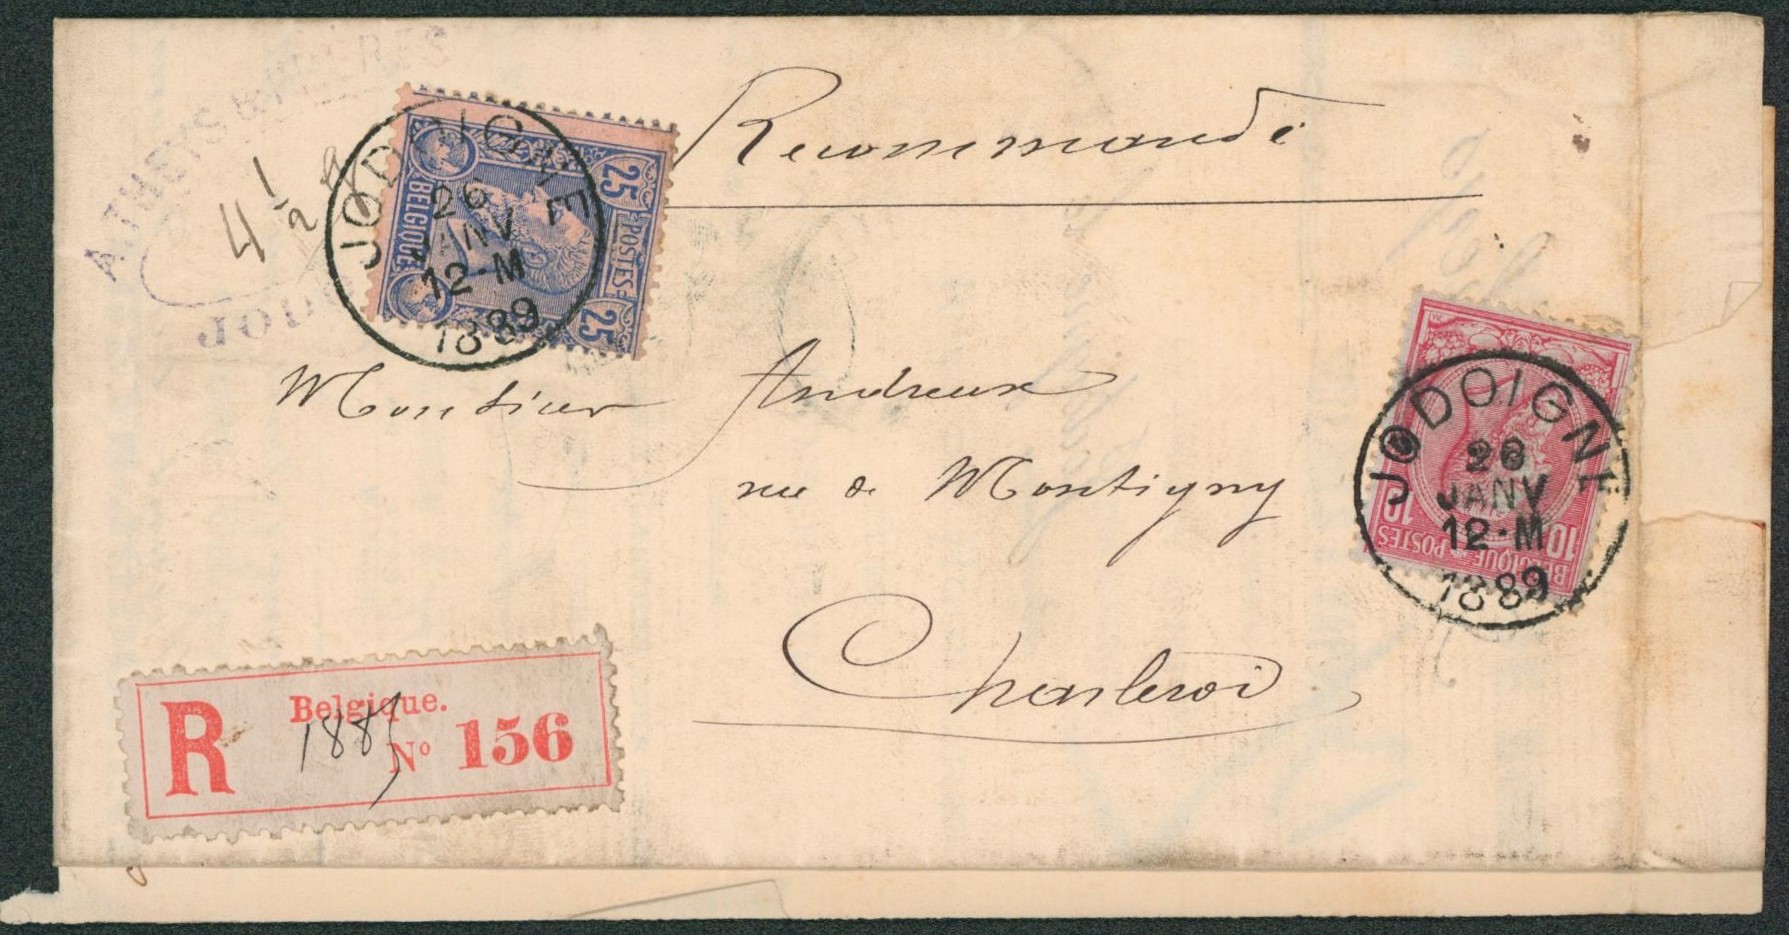 A. THEYS & FRÈRES
JOD
4 1/2
25 POSTES 25
BELGIQUE
JODOIGNE
26
JANV
12-M
1889
Recommandé
Monsieur Andreux
rue de Montigny
Charleroi
10 10
BELGIQUE POSTES
JODOIGNE
26
JANV
12-M
1889
R Belgique.
188
Nº 156